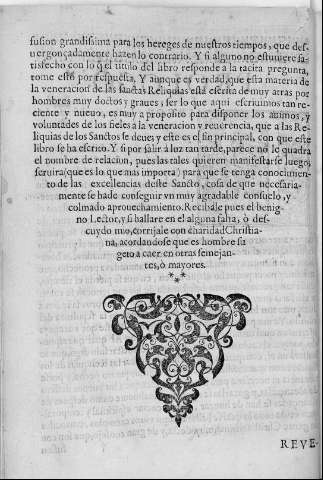 fusion grandissima para los hereges de nuestros tiempos, que des-
uergonçadamente hazen lo contrario. Y si alguno no estuuiere sa-
tisfecho con lo q̃ el titulo del libro responde a la tacita pregunta,
tome esto por respuesta, Y aunque es verdad, que esta materia de
la veneracion de las sanctas Reliquias està escrita de muy atras por
hombres muy doctos y graues; ser lo que aqui escriuimos tan re-
ciente y nueuo, es muy a proposito para disponer los animos, y
voluntades de los fieles a la veneracion y reuerencia, que a las Re-
liquias de los Sanctos se deue; y este es el fin principal, con que este
libro se ha escrito. Y si por salir a luz tan tarde, parece no le quadra
el nombre de relacion, pues las tales quieren manifestarse luego;
seruira (que es lo que mas importa) para que se tenga conocimien-
to de las excelencias deste Sancto, cosa de que necesaria-
mente se ha de conseguir vn muy agradable consuelo, y
colmado aprouechamiento. Recibale pues el benig-
no Lector, y si hallare en el alguna falta, ò des-
cuydo mio, corrijale con charidad Christia-
na, acordandose que es hombre su
geto a caer en otras semejan-
tes, ò mayores.
* * *
REVE-